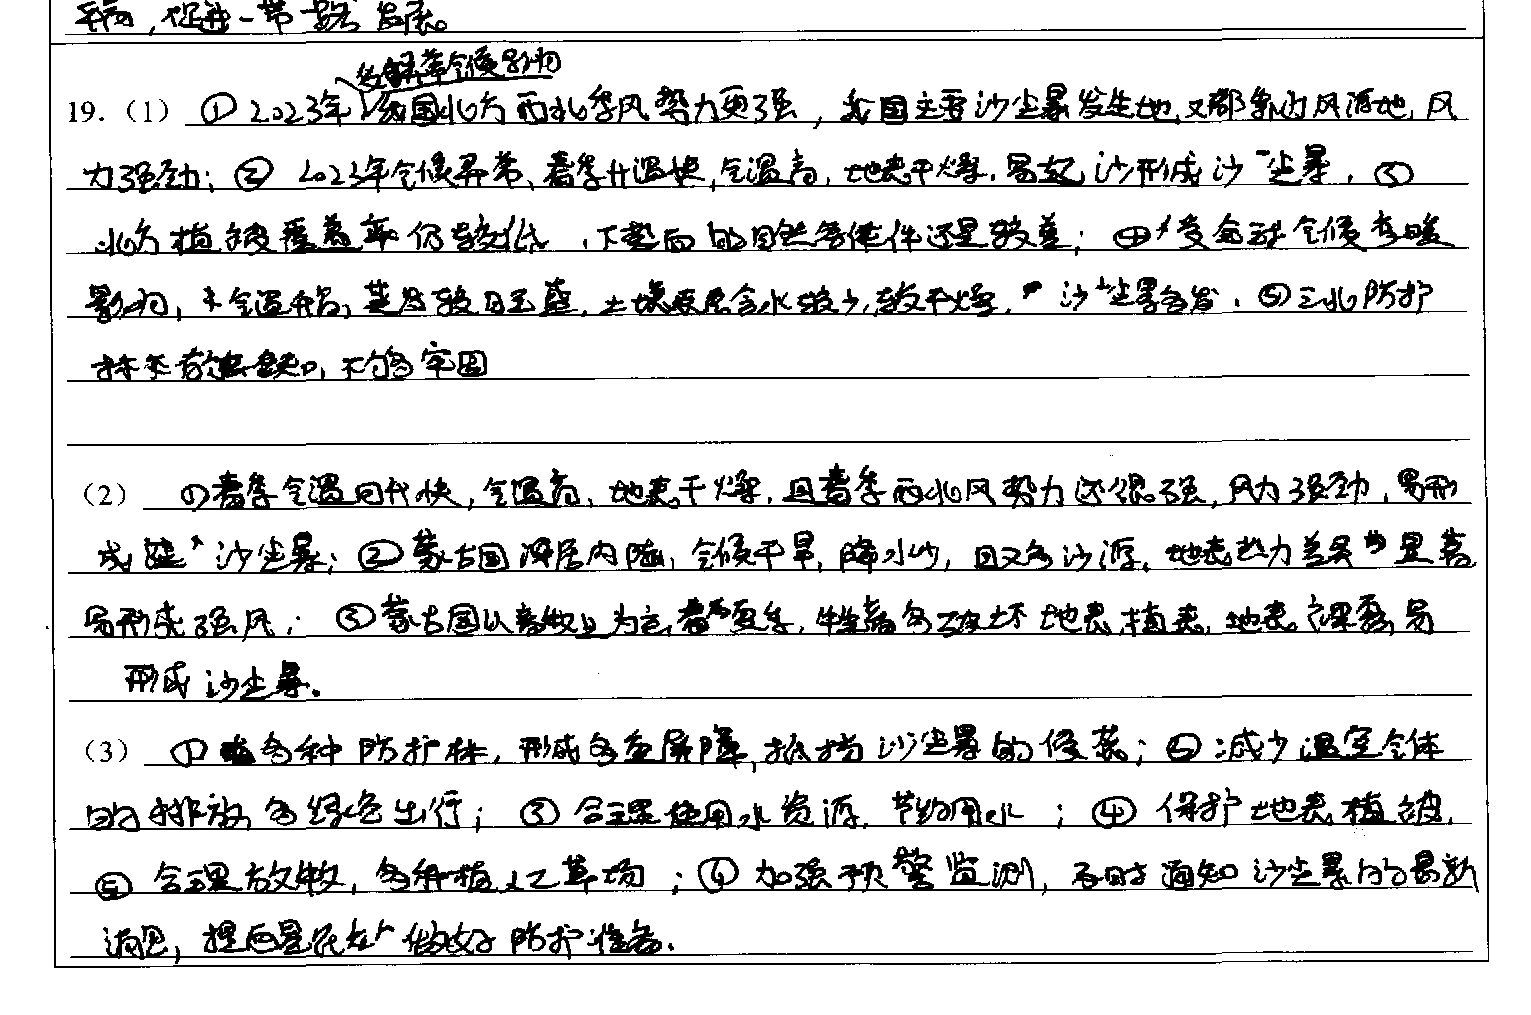 病,促进一带一路发展。
受拉尼娜气候影响
19.(1) ① 2023年我国北方西北季风势力更强,我国主要沙尘暴发生地,又都靠近风源地,风
力强劲;② 2023年气候异常、春季升温快,气温高,地表干燥,易起沙形成沙尘暴。③
北方植被覆盖率仍较低,下垫面的自然条件还是较差;④受全球气候变暖
影响,气温升高,蒸发较旺盛,土壤表层含水较少,较干燥,沙尘暴多发。⑤三北防护
林系有缺口,不够牢固
(2) ①春季气温回升快,气温高,地表干燥,且春季西北风势力还很强,风力强劲,易形
成沙尘暴;②蒙古国深居内陆,气候干旱,降水少,且又多沙源,地表热力差异显著
易形成强风;③蒙古国以畜牧业为主,春夏季,牲畜多破坏地表植表,地表裸露,易
形成沙尘暴。
(3) ①多种防护林,形成多重屏障,抵挡沙尘暴的侵袭;②减少温室气体
的排放,多绿色出行;③合理使用水资源,节约用水;④保护地表植被,
⑤合理放牧,多种植人工草场;⑥加强预警监测,及时通知沙尘暴的最新
消息,提醒民众做好防护准备.